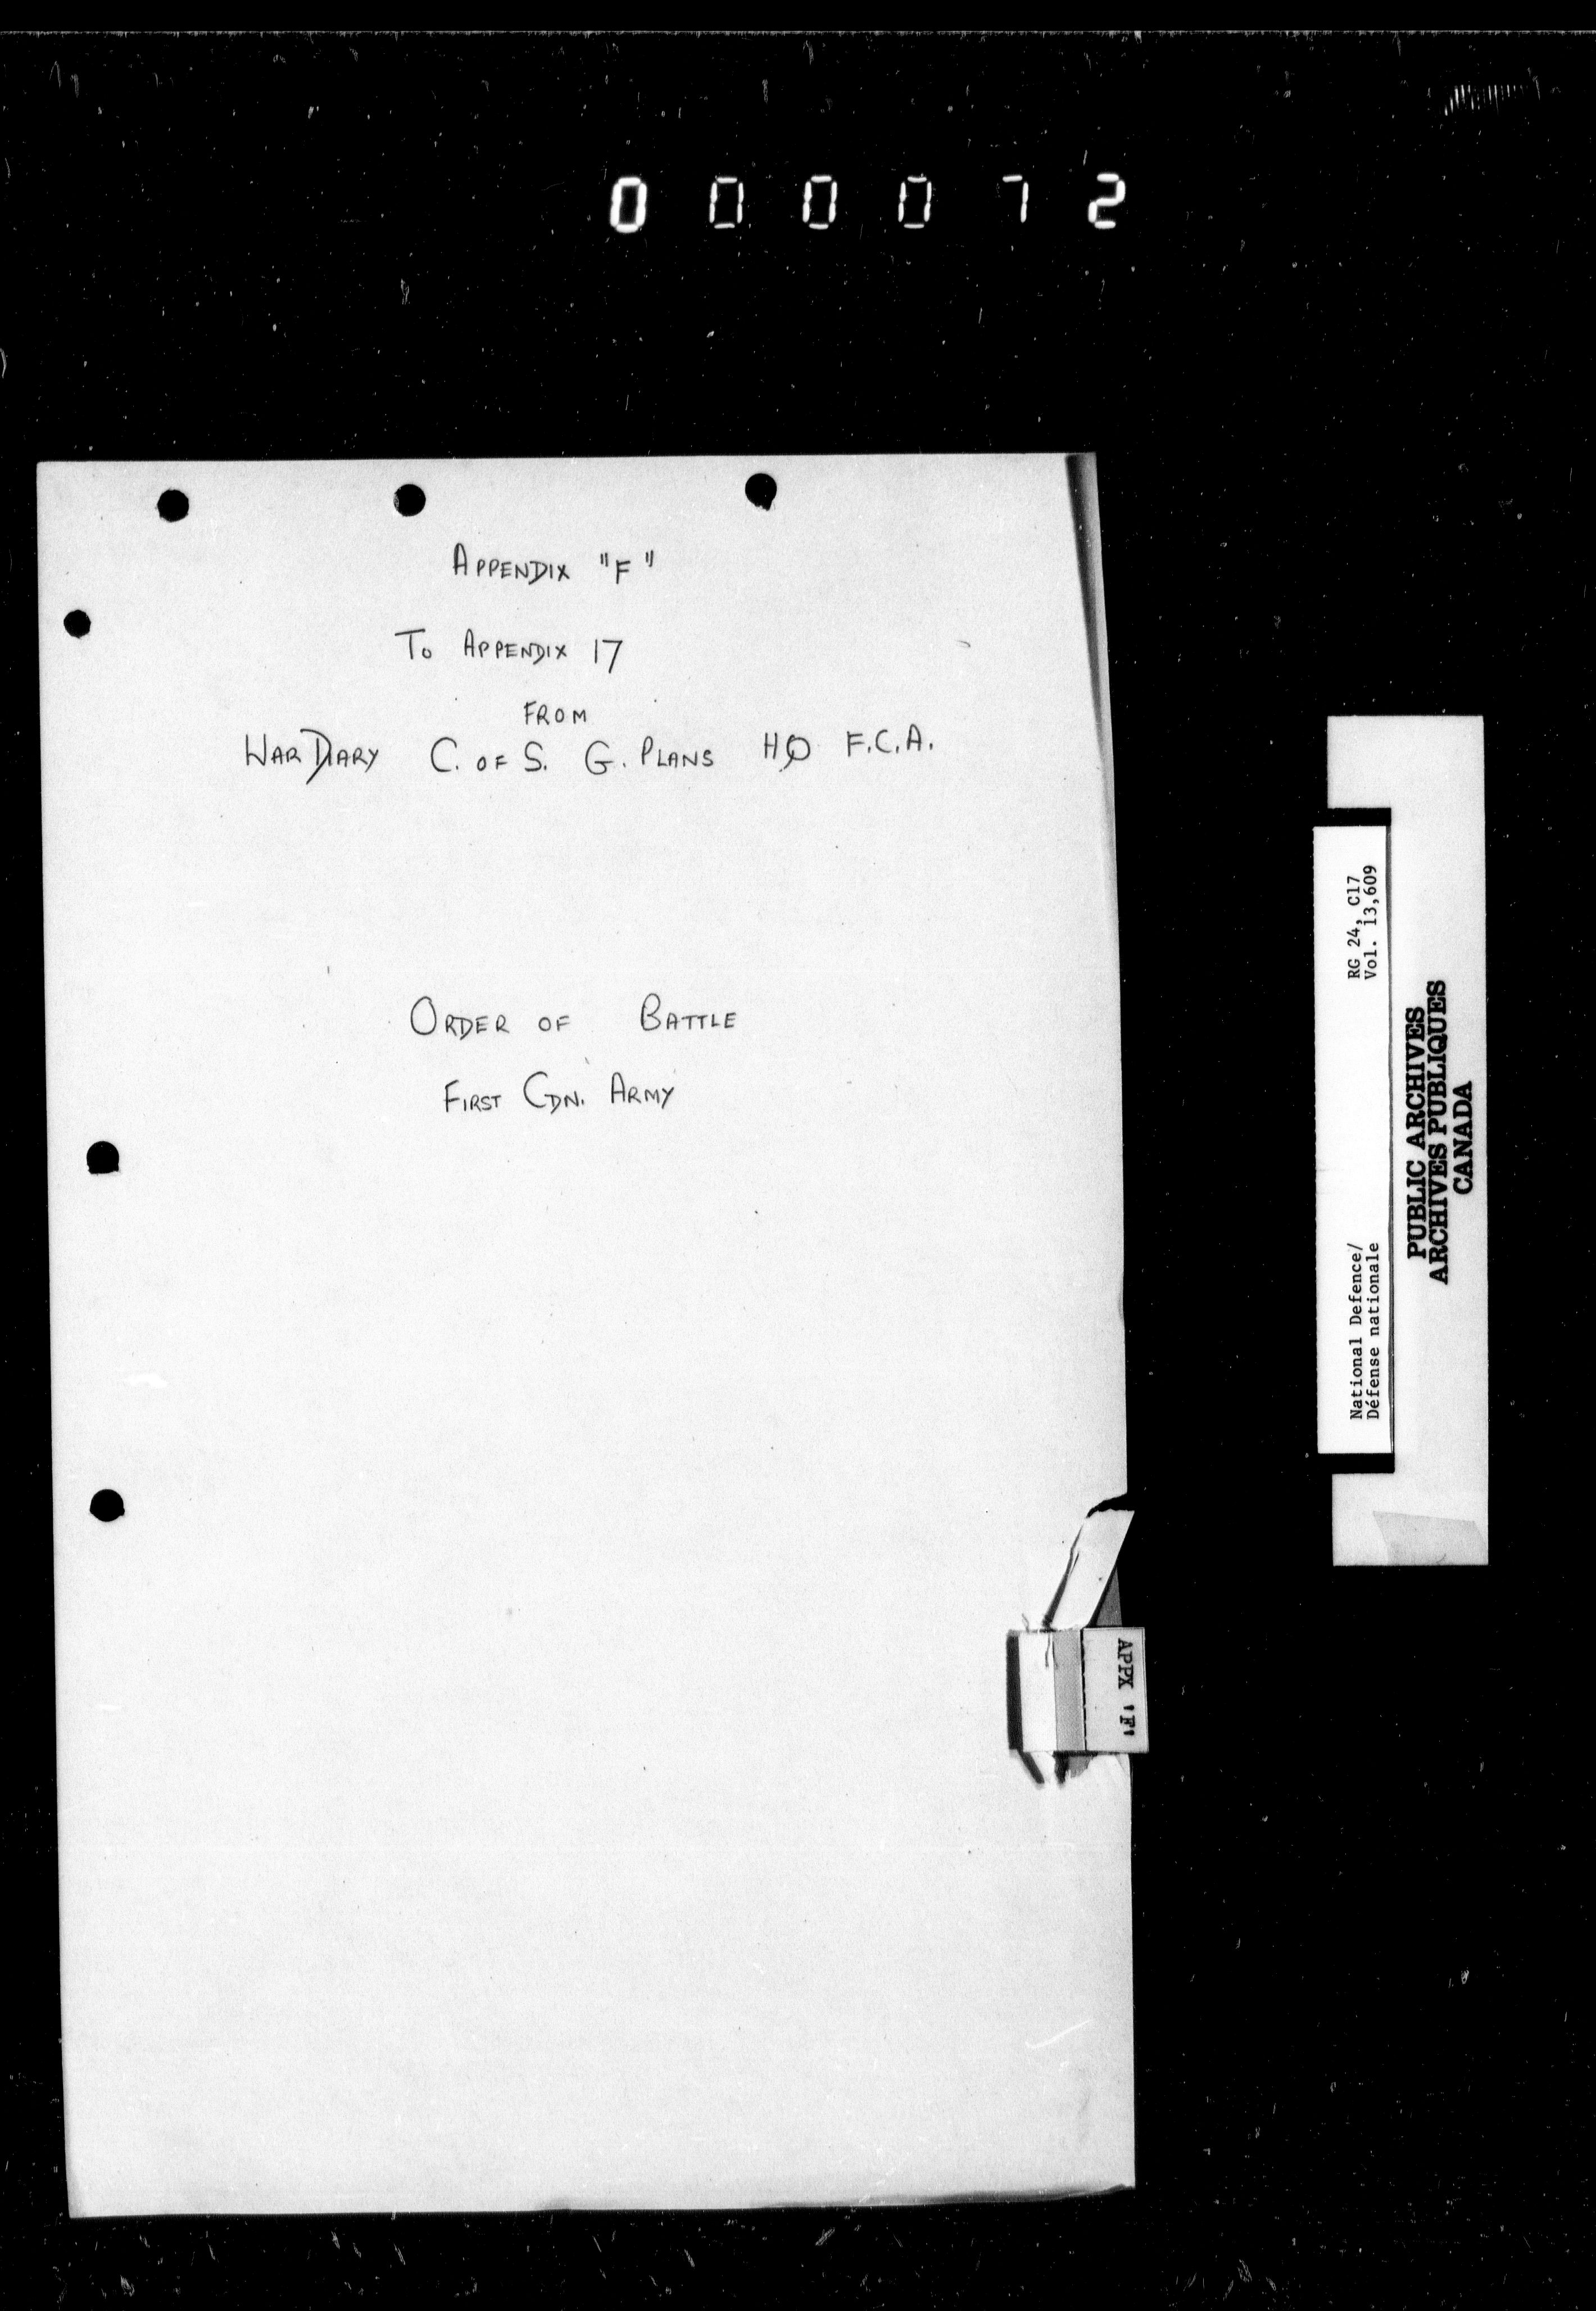 000072
APPENDIX "F"
TO APPENDIX 17
FROM
WAR DIARY C. OF S. G. PLANS HQ F.C.A.
ORDER OF BATTLE
FIRST CDN. ARMY
APPX 'F'
National Defence/
Défense nationale
RG 24, C17
Vol. 13,609
PUBLIC ARCHIVES
ARCHIVES PUBLIQUES
CANADA